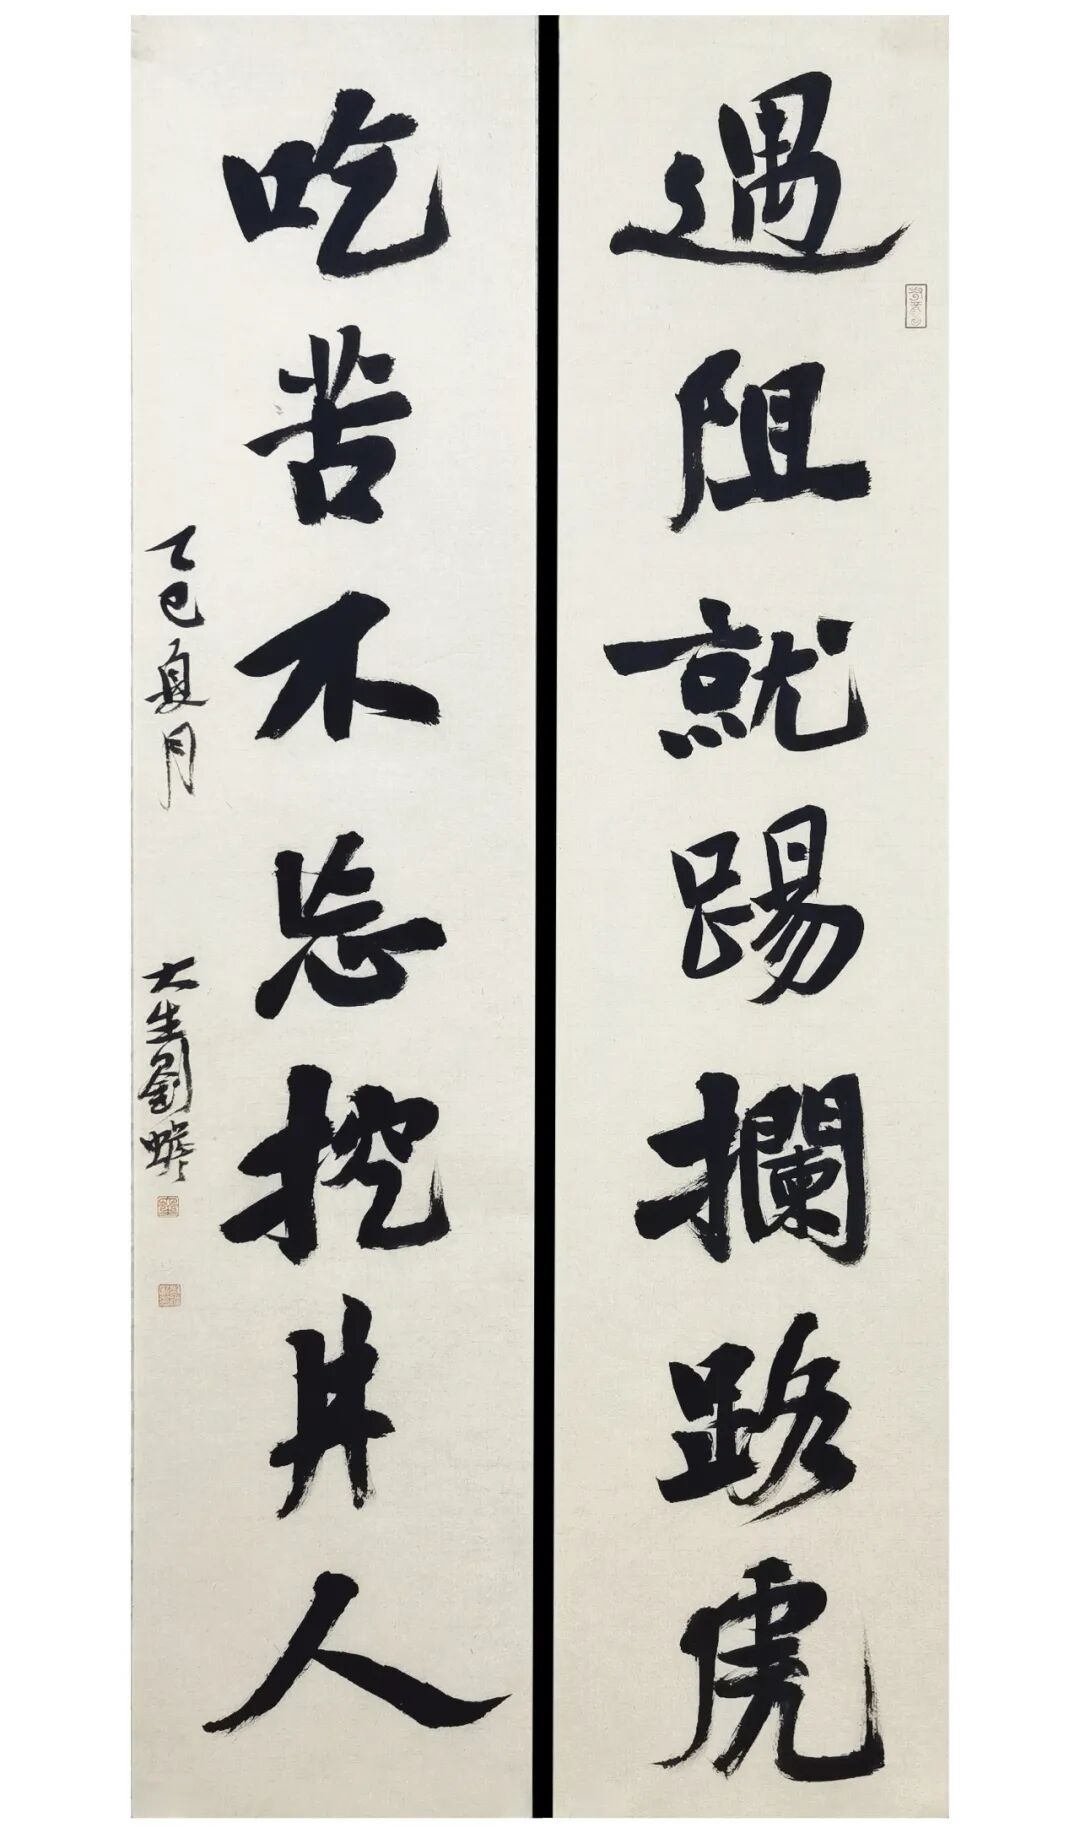 遇阻就踢攔路虎
吃苦不忘挖井人
乙巳夏月
大生劉